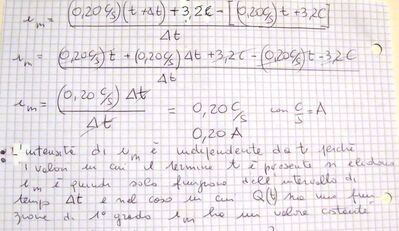 i_m = (0,20 C/s)(t + Δt) + 3,2 C - [(0,20 C/s) t + 3,2 C] / Δt
i_m = (0,20 C/s) t + (0,20 C/s) Δt + 3,2 C - (0,20 C/s) t - 3,2 C / Δt
i_m = (0,20 C/s) Δt / Δt = 0,20 C/s con C/s = A
0,20 A
L'intensità di i_m è indipendente da t perché
i valori in cui il termine t è presente si elidono
i_m è quindi solo funzione dell'intervallo di
tempo Δt e nel caso in cui Q(t) sia una fun
zione di 1° grado i_m ha un valore costante